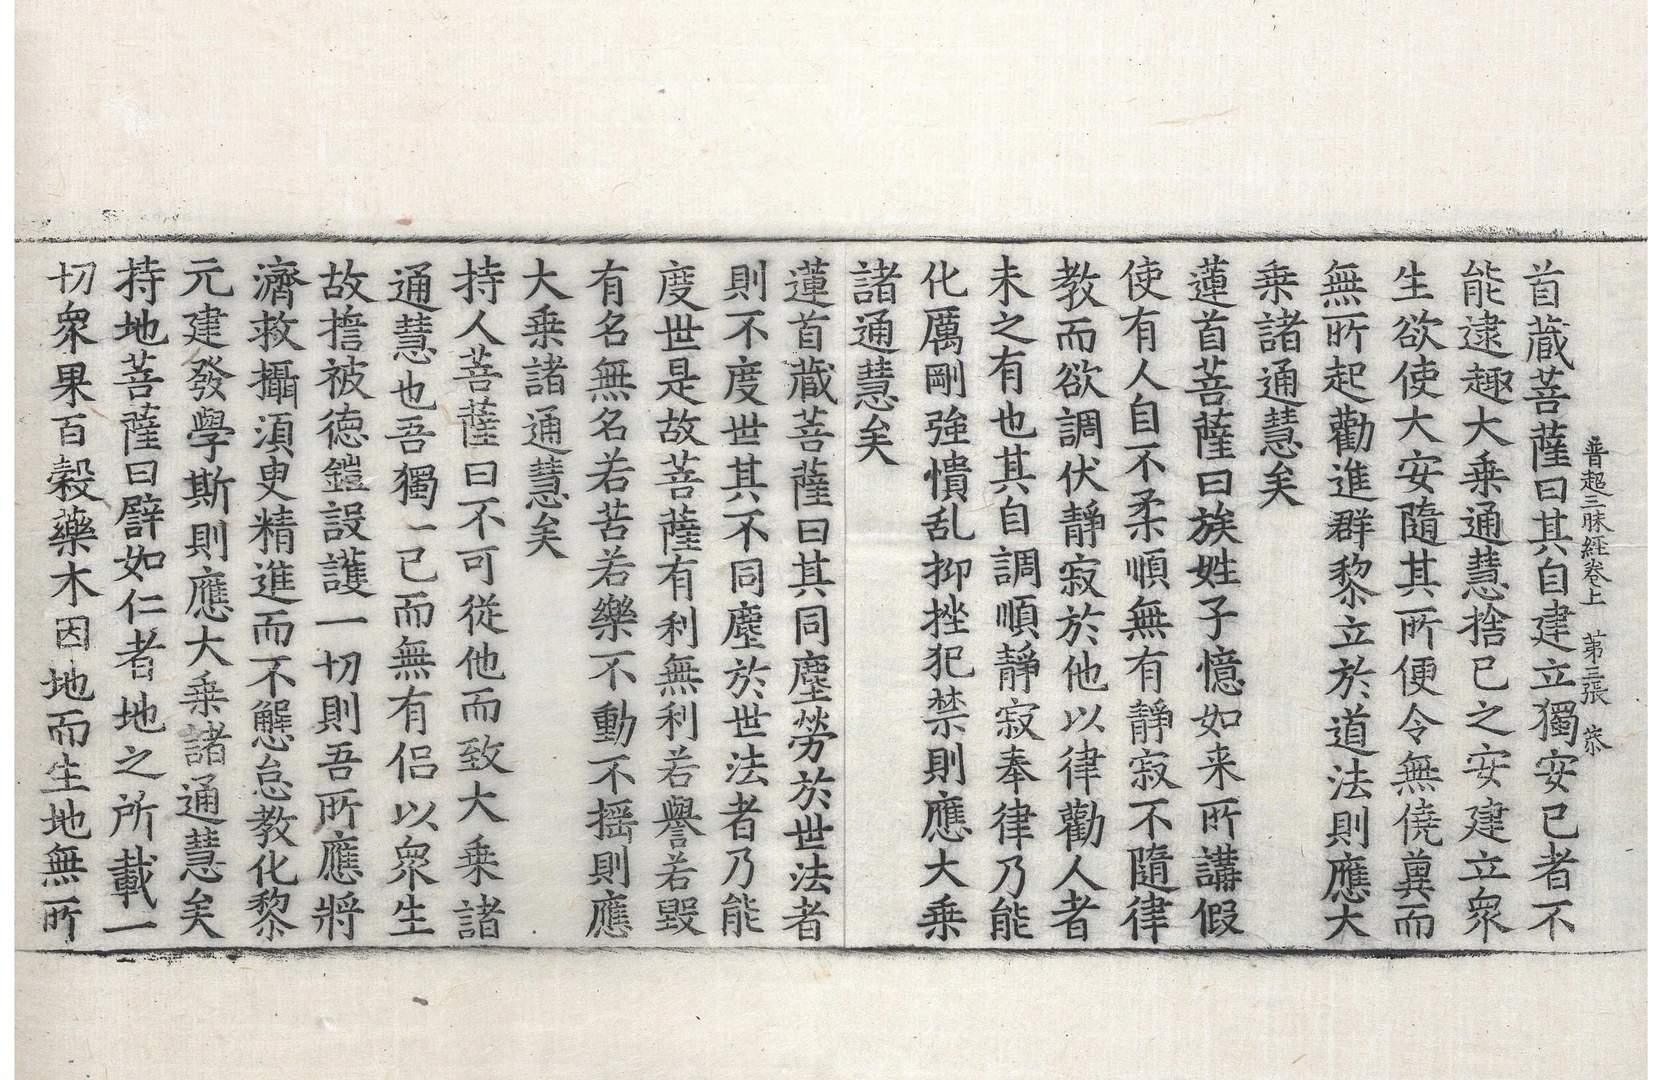 普超三昧經卷上　第三張　恭
首藏菩薩曰其自建立獨安已者不
能逮趣大乘通慧捨已之安建立衆
生欲使大安隨其所便令無僥兾而
無所起勸進群黎立於道法則應大
乗諸通慧矣
蓮首菩薩曰族姓子憶如来所講假
使有人自不柔順無有靜寂不隨律
教而欲調伏靜寂於他以律勸人者
未之有也其自調順靜寂奉律乃能
化厲剛強憒乱抑挫犯禁則應大乗
諸通慧矣
蓮首藏菩薩曰其同塵勞於世法者
則不度世其不同塵於世法者乃能
度世是故菩薩有利無利若譽若毀
有名無名若苦若樂不動不摇則應
大乗諸通慧矣
持人菩薩曰不可從他而致大乗諸
通慧也吾獨一己而無有侶以衆生
故擔被德鎧設護一切則吾所應將
濟救攝湏臾精進而不懈怠教化黎
元建發學斯則應大乗諸通慧矣
持地菩薩曰譬如仁者地之所載一
切衆果百穀藥木因地而生地無所